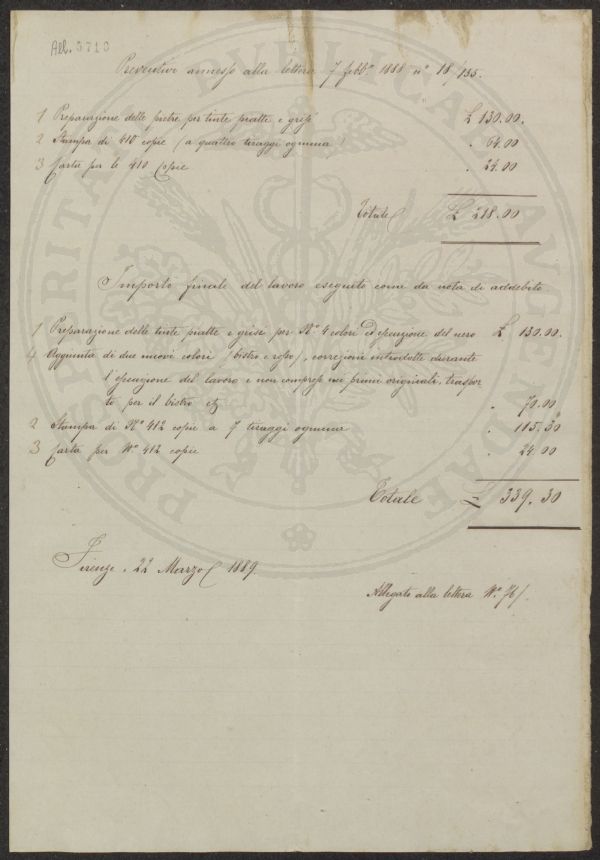 All. 5710
Preventivi annesso alla lettera 7 febb.º 1888 nº 18/155.
1 Preparazione delle pietre per tinte piatte e grise £ 130.00.
2 Stampa di 410 copie (a quattro tiraggi ognuna) " 64.00
3 Carta per le 410 copie " 24.00
Totale £ 218.00
Importo finale del lavoro eseguito come da nota di addebito
1 Preparazione delle tinte piatte e grise per Nº 4 colori ed esecuzione del nero £ 130.00.
4 Aggiunta di due nuovi colori (bistro e rosso), correzioni introdotte durante
l'esecuzione del lavoro e non comprese nei primi originali, traspor
to per il bistro " 70.00
2 Stampa di Nº 412 copie a 7 tiraggi ognuna " 115.30
3 Carta per Nº 412 copie " 24.00
Totale £ 339.30
Firenze, 22 Marzo 1889.
Allegato alla lettera Nº 76/.
PROSPERITATI PUBLICAE AUGENDAE